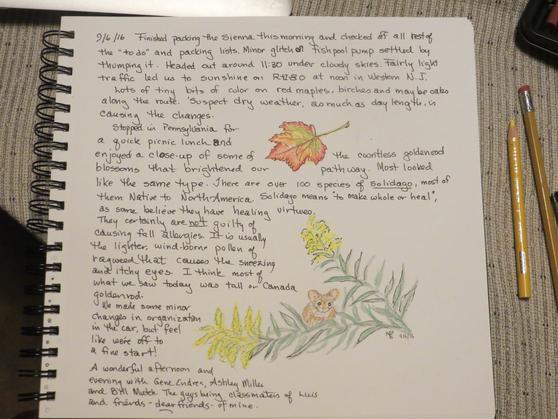 9/6/16 Finished packing the Sienna this morning and checked off all rest of
the "to do" and packing lists. Minor glitch of fishpool pump settled by
thumping it. Headed out around 11:30 under cloudy skies. Fairly light
traffic led us to sunshine on at noon in Western N.J.
Lots of tiny bits of color on red maples, birches and maybe oaks
along the route. Suspect dry weather, as much as day length, is
causing the changes.
Stopped in Pennsylvania for
a quick picnic lunch and
enjoyed a close-up of some of the countless goldenrod
blossoms that brightened our pathway. Most looked
like the same type. There are over 100 species of solidago, most of
them Native to North America. Solidago means "to make whole or heal",
as some believe they have healing virtues.
They certainly are not guilty of
causing fall allergies. It is usually
the lighter, wind-borne pollen of
ragweed that causes the sneezing
and itchy eyes. I think most of
what we saw today was tall or Canada
goldenrod.
We made some minor
changes in organization
in the car, but feel
like we're off to
a fine start!
A wonderful afternoon and
evening with Gene Endres, Ashley Miller
and Bill Mutch. The guys being classmates of
and friends - dear friends - of mine.